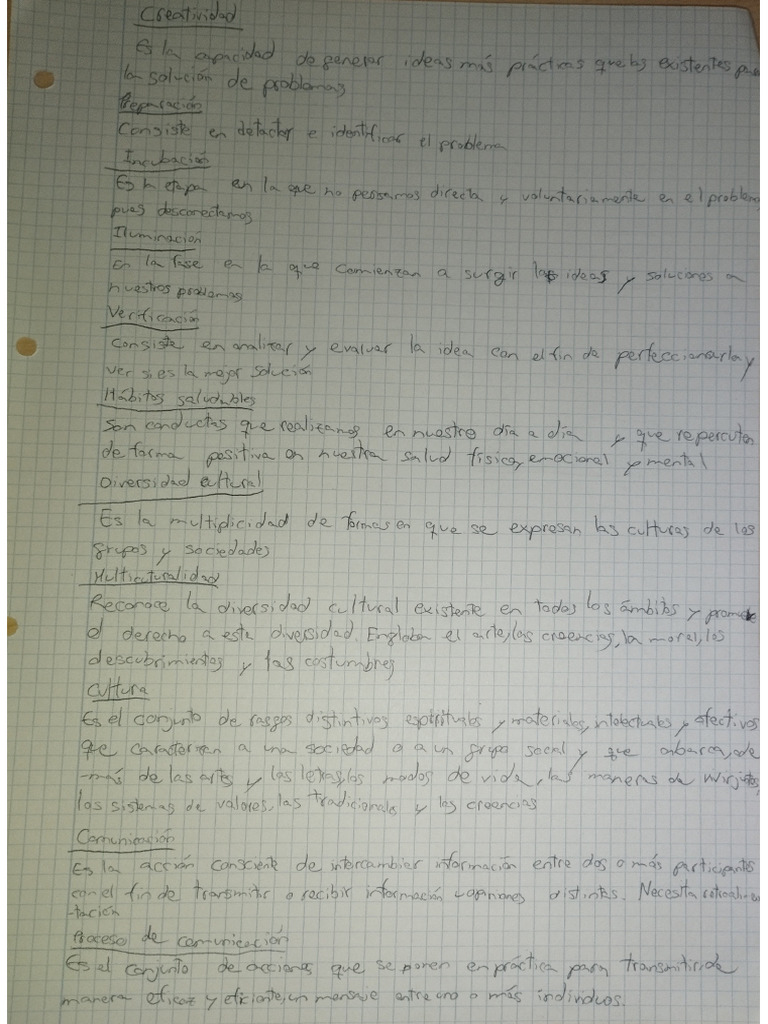 Creatividad
Es la capacidad de generar ideas más prácticas que las existentes para
la solución de problemas
Preparación
Consiste en detactar e identificar el problema
Incubación
Es la etapa en la que no pensamos directa y voluntariamente en el problema
pues desconectamos
Iluminación
En la fase en la que comienzan a surgir las ideas y soluciones a
nuestros problemas
Verificación
Consiste en analizar y evaluar la idea con el fin de perfeccionarla y
ver si es la mejor solución
Hábitos saludables
Son conductas que realizamos en nuestro día a día y que repercuten
de forma positiva en nuestra salud física, emocional y mental
Diversidad cultural
Es la multiplicidad de formas en que se expresan las culturas de los
grupos y sociedades
Multiculturalidad
Reconoce la diversidad cultural existente en todos los ámbitos y promueve
el derecho a esta diversidad. Engloban el arte, las creencias, la moral, los
descubrimientos y las costumbres
Cultura
Es el conjunto de rasgos distintivos espirituales y materiales, intelectuales y afectivos
que caracterizan a una sociedad o a un grupo social y que abarca, ade
-más de las artes y las letras, los modos de vida, las maneras de vivir juntos,
los sistemas de valores, las tradicionals y las creencias
Comunicación
Es la acción consciente de intercambiar información entre dos o más participantes
con el fin de transmitir o recibir información u opiniones distintas. Necesita retroalimen
-tación
Proceso de comunicación
Es el conjunto de acciones que se ponen en práctica para transmitir, de
manera eficaz y eficiente, un mensaje entre uno o más individuos.